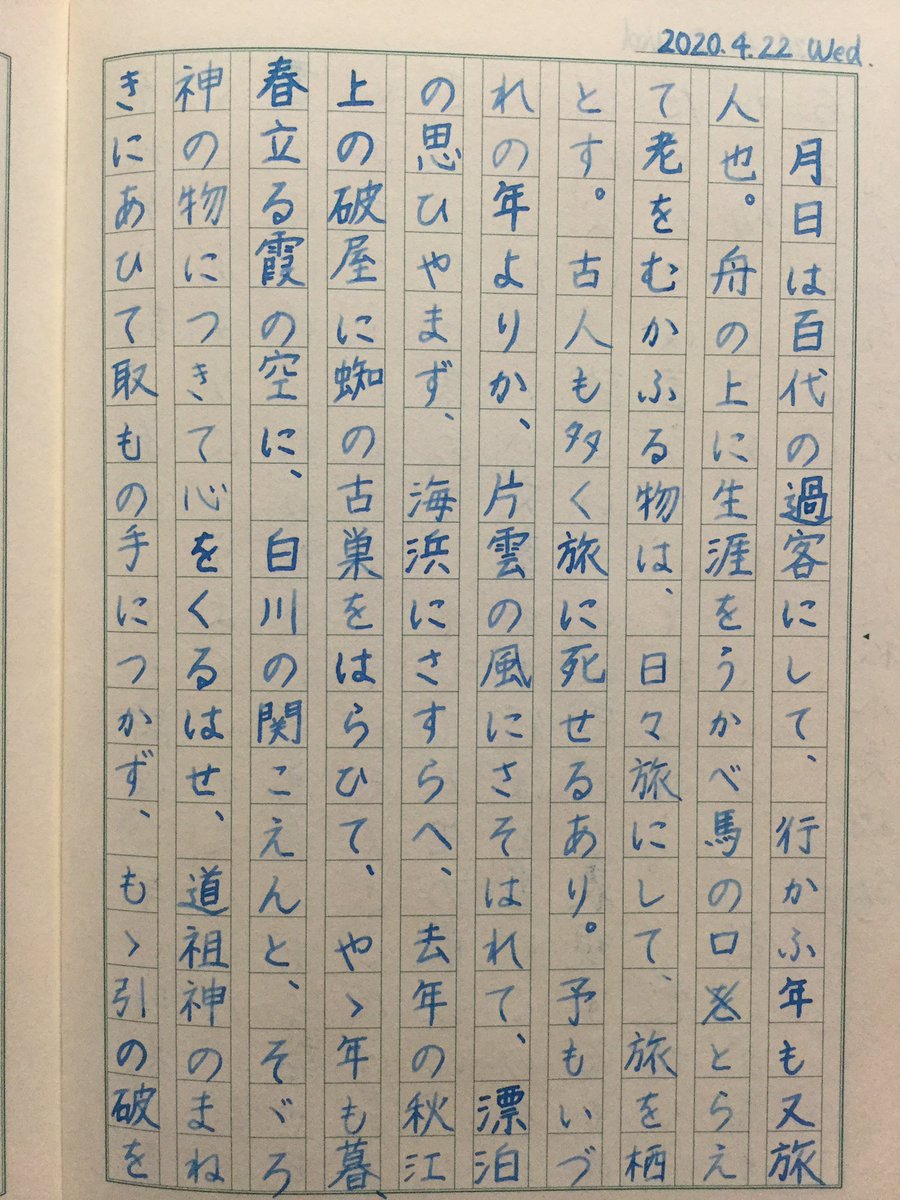 2020.4.22 Wed.
月日は百代の過客にして、行かふ年も又旅
人也。舟の上に生涯をうかべ馬の口とらえ
て老をむかふる物は、日々旅にして、旅を栖
とす。古人も多く旅に死せるあり。予もいづ
れの年よりか、片雲の風にさそはれて、漂泊
の思ひやまず、海浜にさすらへ、去年の秋江
上の破屋に蜘の古巣をはらひて、やゝ年も暮、
春立る霞の空に、白川の関こえんと、そゞろ
神の物につきて心をくるはせ、道祖神のまね
きにあひて取もの手につかず、もゝ引の破を